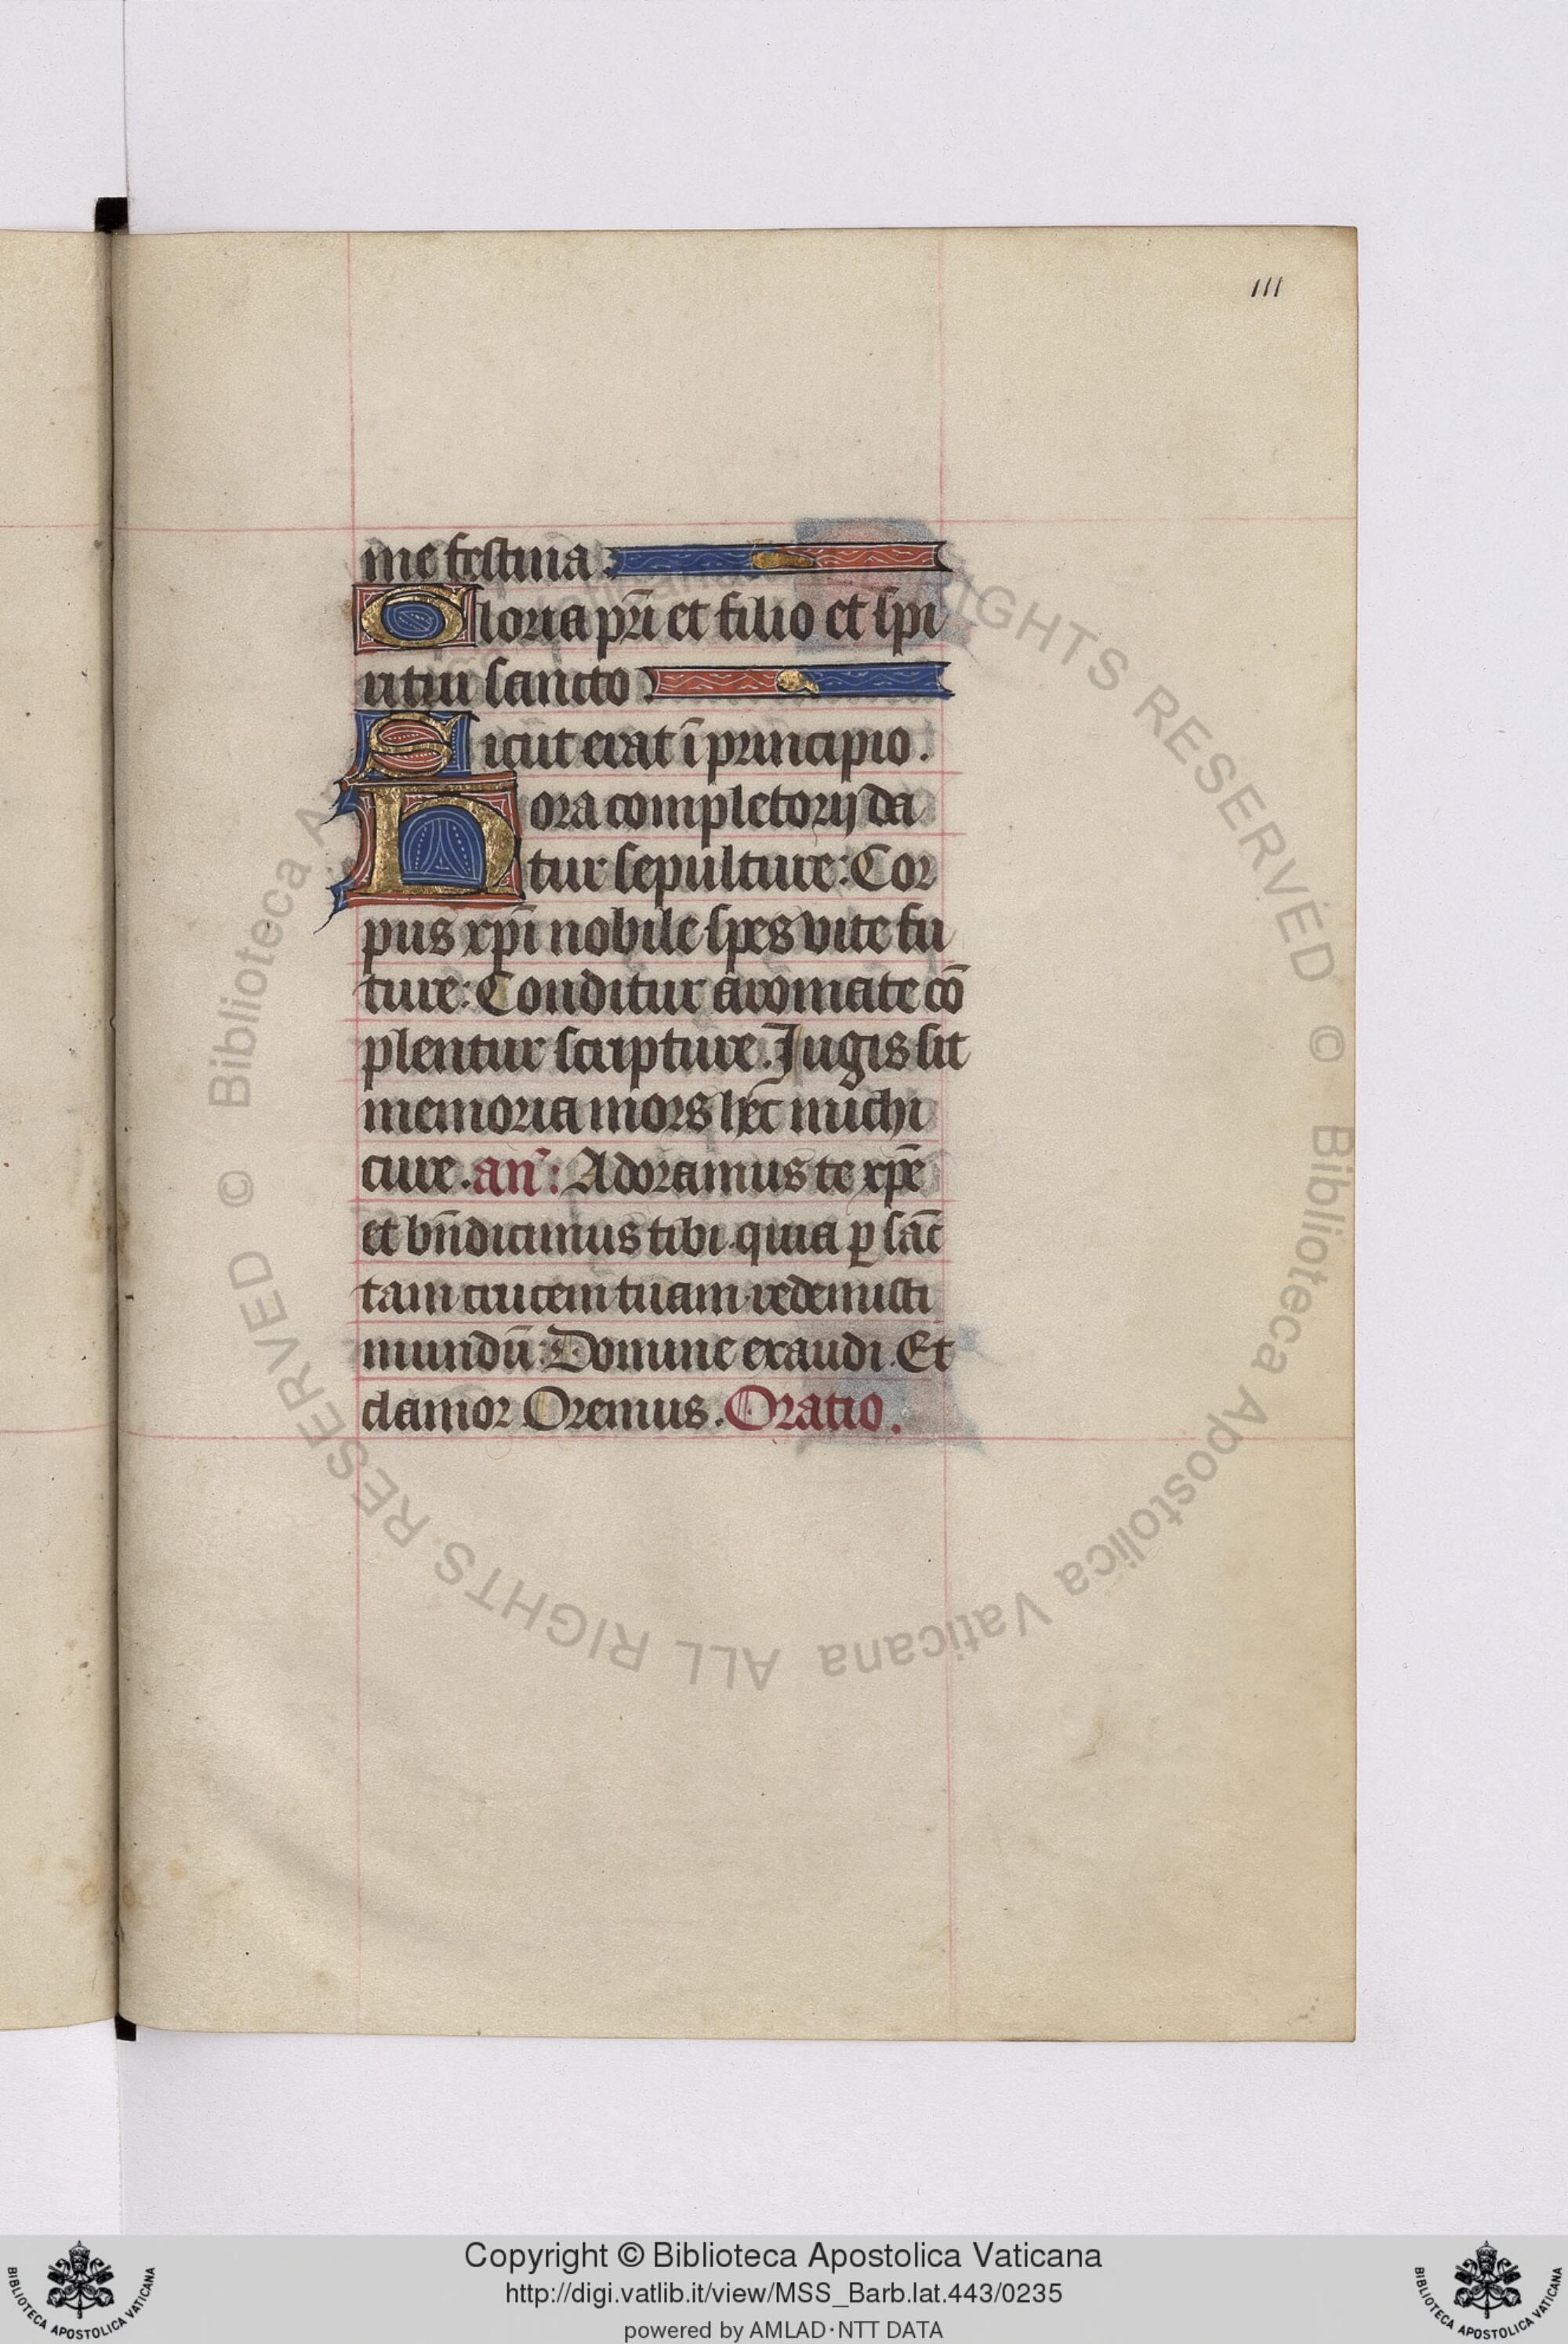 111
me festina.
Gloria pr̄i et filio et spi
ritui sancto.
Sicut erat ī principio.
Hora completorij da
tur sepulture: Cor
pus xp̄i nobile spes vite fu
ture: Conditur aromate cō
plentur scripture. Jugis sit
memoria mors hec michi
cure. an̄: Adoramus te xp̄e
et bn̄dicimus tibi. quia ꝑ sāc
tam crucem tuam redemisti
mundū: Domine exaudi. Et
clamor Oremus. Oratio.
© Biblioteca Apostolica Vaticana ALL RIGHTS RESERVED
Copyright © Biblioteca Apostolica Vaticana
http://digi.vatlib.it/view/MSS_Barb.lat.443/0235
powered by AMLAD·NTT DATA
BIBLIOTECA APOSTOLICA VATICANA
BIBLIOTECA APOSTOLICA VATICANA